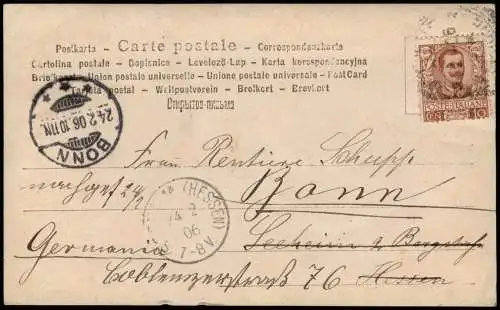 Postkarta — Carte postale — Correspondenzkarte
Cartolina postale — Dopisnice — Levelező-Lap — Karta korespondencyjna
Briefkaart — Union postale universelle — Unione postale universale — PostCard
Tarjeta postal — Weltpostverein — Brefkort — Brevkort
Открытое письмо
POSTE ITALIANE
CENT. 10
BONN
24.2.06.10-11N.
(HESSEN)
2
06
7-8V.
Frau Rentiere Schupp
nachges 24/2
Bonn
Seeheim a. Bergstr
Germania
Hessen
Coblenzerstraß 76